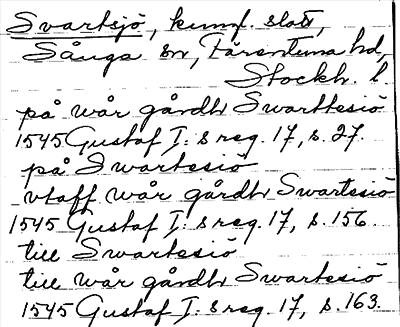 Svartsjö, kungl. slott,
Sånga sn, Färentuna hd,
Stockh. l.
på wår gårdh Swarttesiö
1545 Gustaf I:s reg. 17, s. 27.
på Swartesiö
vtaff wår gårdh Swartesiö
1545 Gustaf I:s reg. 17, s. 156.
till Swartesiö
till wår gårdh Swartesiö
1545 Gustaf I:s reg. 17, s. 163.